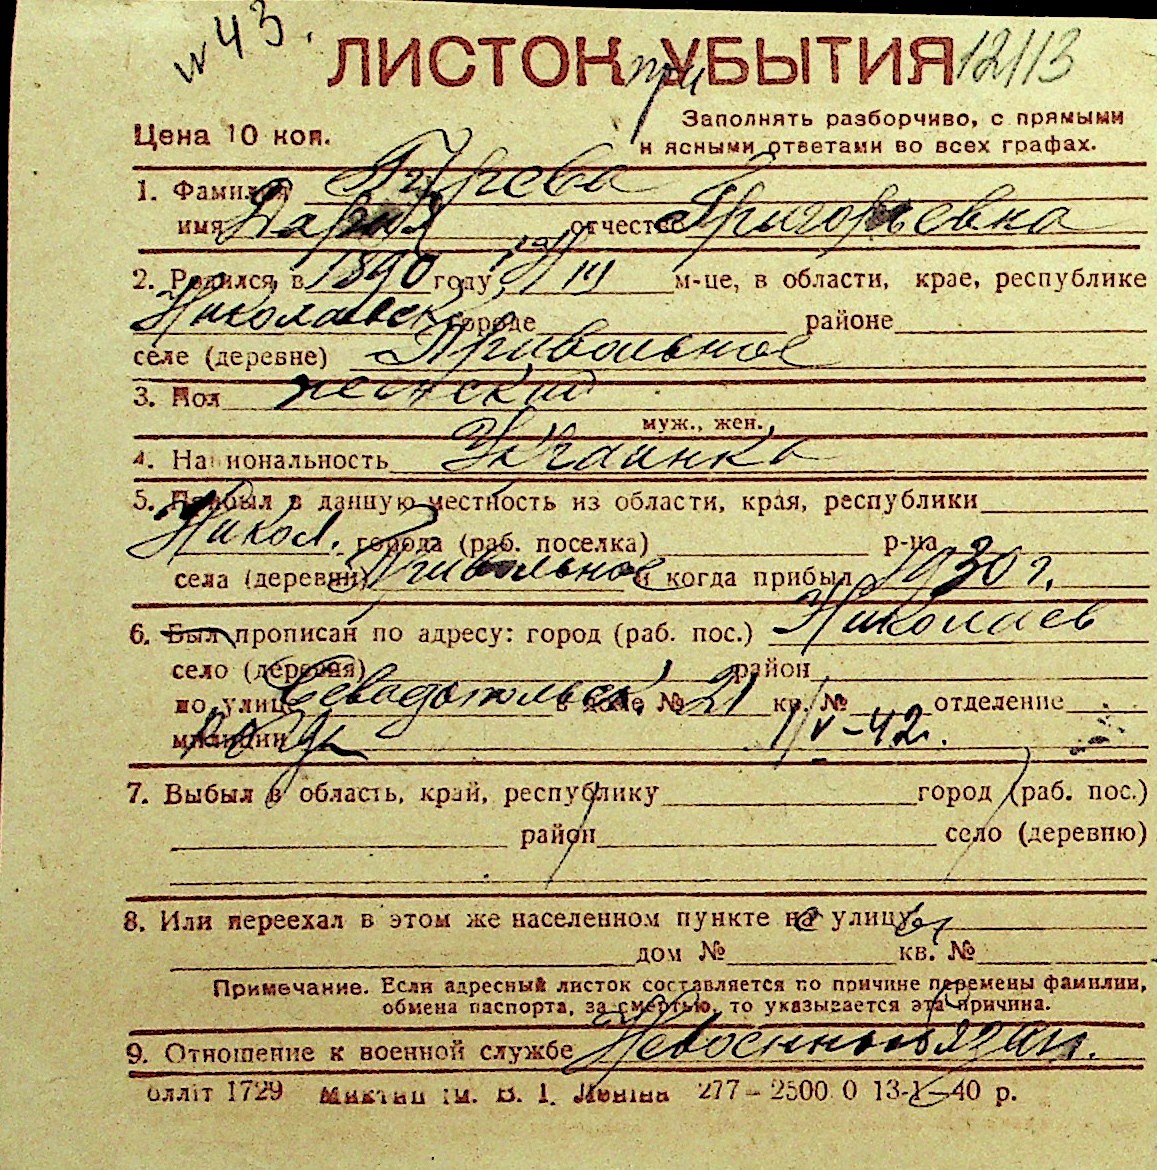 N 43. ЛИСТОК при УБЫТИЯ 12/13
Цена 10 коп.
Заполнять разборчиво, с прямыми
и ясными ответами во всех графах.
1. Фамилия
имя Дарья отчество Григорьевна
2. Родился в 1890 году 19/III м-це, в области, крае, республике
Николаевск. городе районе
селе (деревне) Привольное
3. Пол женский
муж., жен.
4. Национальность Украинка
5. Прибыл в данную местность из области, края, республики
Никол. города (раб. поселка) р-на
села (деревни) Привольное и когда прибыл 1930 г.
6. Был прописан по адресу: город (раб. пос.) Николаев
село (деревня) район
по улице Севастопольск. в доме № 21 кв. № отделение
милиции 1/V-42.
7. Выбыл в область, край, республику город (раб. пос.)
район село (деревню)
8. Или переехал в этом же населенном пункте с улицы
дом № кв. №
Примечание. Если адресный листок составляется по причине перемены фамилии,
обмена паспорта, за смертью, то указывается эта причина.
9. Отношение к военной службе Невоеннообязан.
Олліт 1729 ім. В. І. Леніна 277-2500 0 13-1-40 р.